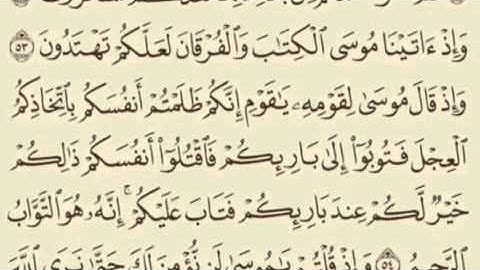 وَإِذْ ءَاتَيْنَا مُوسَى الْكِتَابَ وَالْفُرْقَانَ لَعَلَّكُمْ تَهْتَدُونَ ٥٣
وَإِذْ قَالَ مُوسَىٰ لِقَوْمِهِۦ يَاقَوْمِ إِنَّكُمْ ظَلَمْتُمْ أَنفُسَكُم بِاتِّخَاذِكُمُ
الْعِجْلَ فَتُوبُوٓا۟ إِلَىٰ بَارِئِكُمْ فَاقْتُلُوٓا۟ أَنفُسَكُمْ ذَٰلِكُمْ
خَيْرٌ لَّكُمْ عِندَ بَارِئِكُمْ فَتَابَ عَلَيْكُمْ ۚ إِنَّهُۥ هُوَ التَّوَّابُ
الرَّحِيمُ ٥٤ وَإِذْ قُلْتُمْ يَامُوسَىٰ لَن نُّؤْمِنَ لَكَ حَتَّىٰ نَرَى اللَّهَ